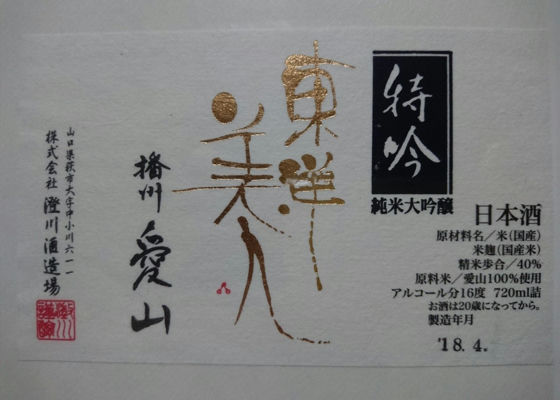 特吟
純米大吟醸
日本酒
原材料名／米(国産)
米麹(国産米)
精米歩合／40%
原料米／愛山100%使用
アルコール分16度 720ml詰
お酒は20歳になってから。
製造年月
'18.4.
東洋
美人
播州 愛山
山口県萩市大字中小川六一一
株式会社 澄川酒造場